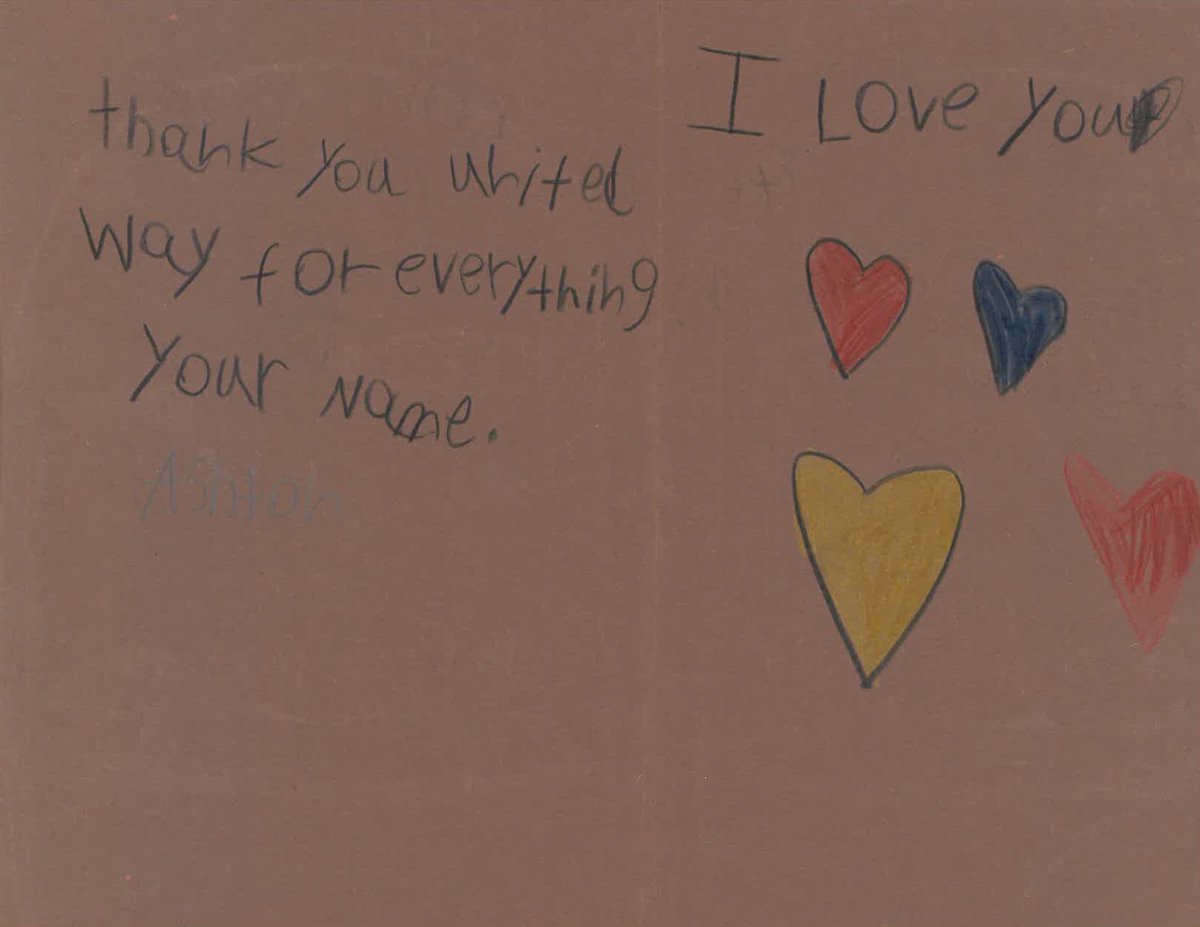 thank you united
way for everything
your name.
Ashton
I Love you